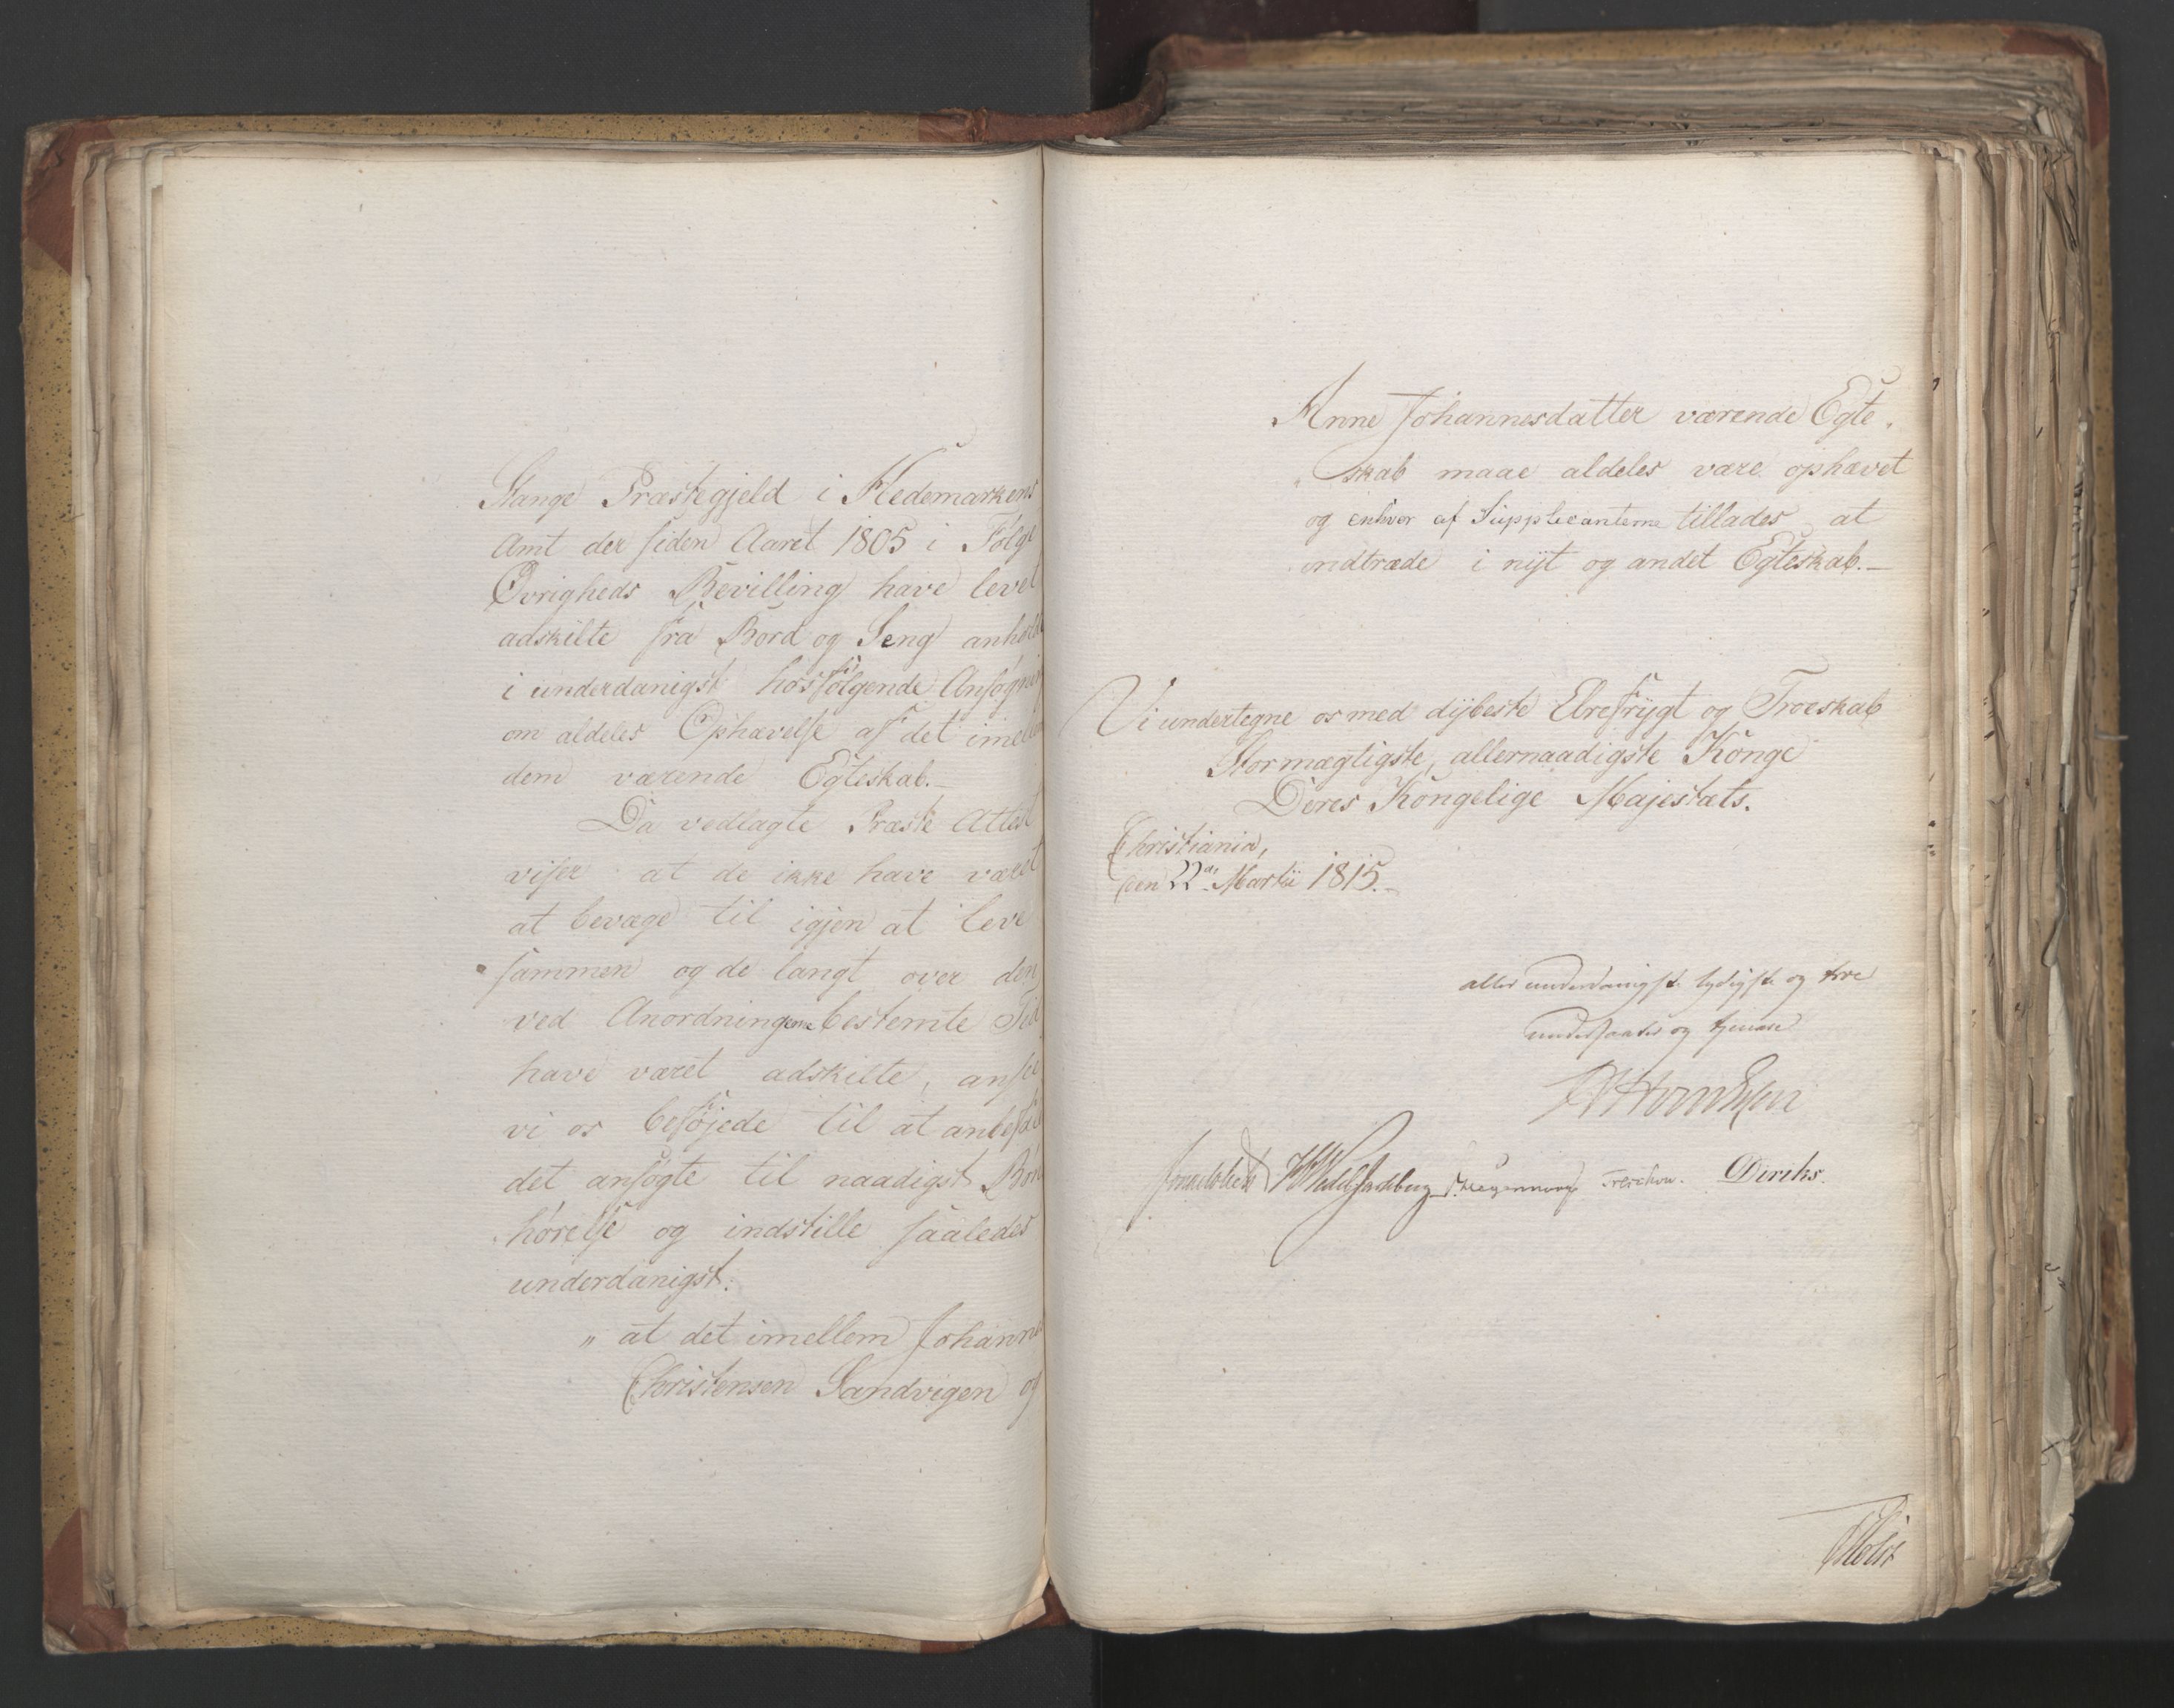 Stange Præstegjeld i Hedemarkens
Amt der siden Aaret 1805 i Følge
Øvrigheds Bevilling have levet
adskilte fra Bord og Seng anholde
i underdanigst hosfølgende Ansøgning
om aldeles Ophævelse af det imellem
dem værende Egteskab.–
Da vedlagte Præste Attest
viser at de ikke have været
at bevæge til igjen at leve
sammen og de langt over den
ved Anordningerne bestemte Tid
have været adskilte, ansee
vi os beføjede til at anbefale
det ansøgte til naadigst Bøn
hørelse og indstille saaledes
underdanigst:
„ at det imellem Johannes
Christensen Sandvigen og
Anne Johannesdatter værende Egte
„ skab maae aldeles være ophævet
og enhver af Supplicanterne tillades at
indtræde i nyt og andet Egteskab.–
Vi undertegne os med dybeste Ærefrygt og Troeskab
Stormægtigste, allernaadigste Konge
Deres Kongelige Majestæts.
Christiania,
den 22de Martii 1815.–
allerunderdanigste lydigste og troe
undersaatter og tjenere
Diriks.